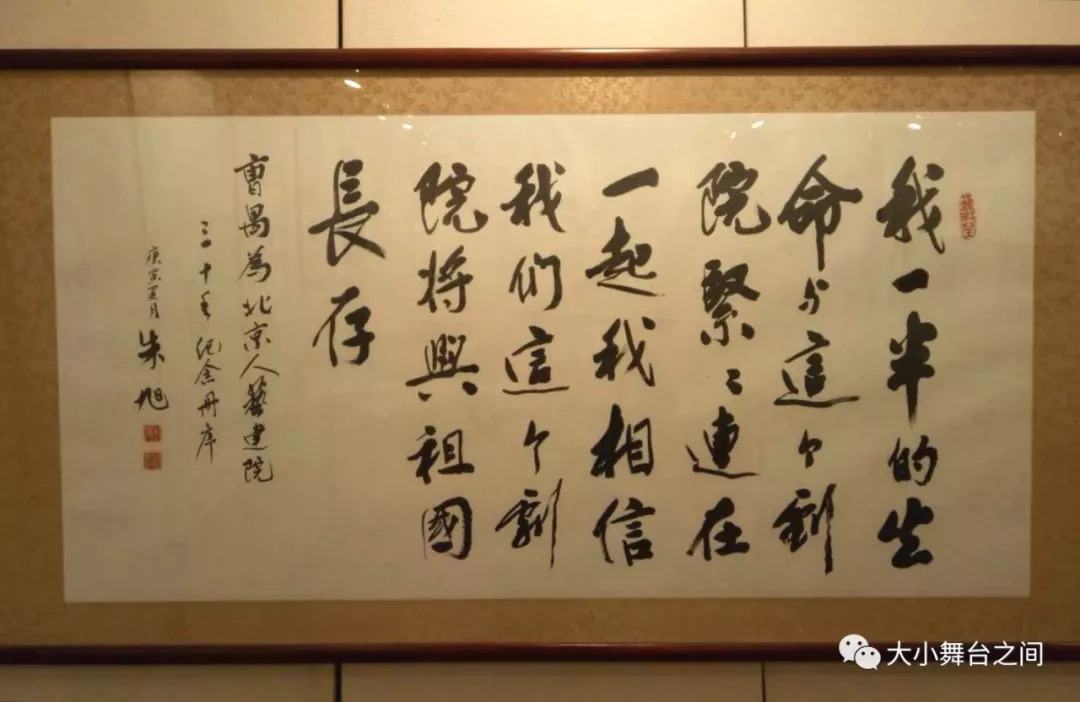 我一半的生
命与這个劇
院緊〻連在
一起我相信
我们這个劇
院将與祖國
長存
曹禺為北京人藝建院
三十年紀念冊序
庚寅夏月 朱旭
大小舞台之间